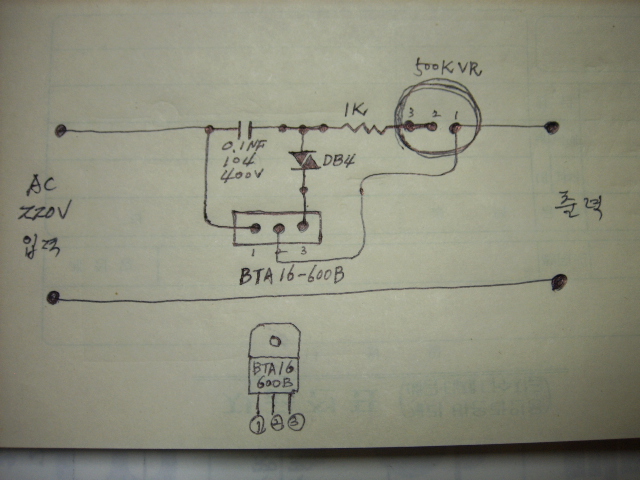 500K VR
1K
3 2 1
0.1NF
104
400V
DB4
AC
220V
입력
출력
1 2 3
BTA16-600B
BTA16
600B
① ② ③